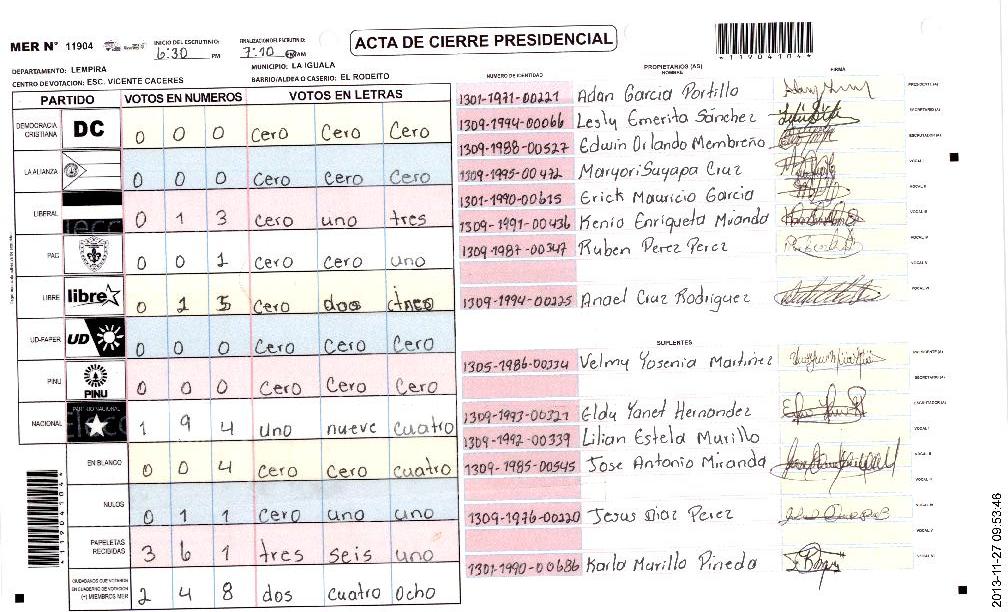 MER N° 11904
INICIO DEL ESCRUTINIO: 6:30 PM
FINALIZACION DEL ESCRUTINIO: 7:10
ACTA DE CIERRE PRESIDENCIAL
*11904104*
DEPARTAMENTO: LEMPIRA
MUNICIPIO: LA IGUALA
CENTRO DE VOTACION: ESC. VICENTE CACERES
BARRIO/ALDEA O CASERIO: EL RODEITO
PARTIDO VOTOS EN NUMEROS VOTOS EN LETRAS
DEMOCRACIA CRISTIANA DC 0 0 0 Cero Cero Cero
LA ALIANZA 0 0 0 Cero Cero Cero
LIBERAL 0 1 3 Cero uno tres
PAC 0 0 1 Cero Cero uno
LIBRE libre 0 Cero
UD-FAPER UD 0 0 0 Cero Cero Cero
PINU PINU 0 0 0 Cero Cero Cero
NACIONAL PARTIDO NACIONAL 1 9 4 uno nueve cuatro
EN BLANCO 0 0 4 Cero Cero cuatro
NULOS 0 1 1 Cero uno uno
PAPELETAS RECIBIDAS 3 6 1 tres seis uno
CIUDADANOS QUE VOTARON EN CUADERNO DE VOTACION (+) MIEMBROS MER 2 4 8 dos cuatro Ocho
PROPIETARIOS (AS)
NUMERO DE IDENTIDAD NOMBRE FIRMA
1301-1971-00221 Adan Garcia Portillo PRESIDENTE(A)
1309-1994-00066 Lesly Emerita Sánchez SECRETARIO(A)
1309-1988-00527 Edwin Orlando Membreño ESCRUTADOR(A)
1309-1995-00472 Maryori Suyapa Cruz VOCAL I
1301-1990-00615 Erick Mauricio Garcia VOCAL II
1309-1991-00436 Kenia Enriqueta Miranda VOCAL III
1309-1987-00347 Ruben Perez Perez VOCAL IV
VOCAL V
1309-1994-00225 Anael Cruz Rodriguez VOCAL VI
SUPLENTES
1305-1986-00334 Velmy Yosenia Martinez PRESIDENTE(A)
SECRETARIO(A)
1309-1993-00321 Eldy Yanet Hernandez ESCRUTADOR(A)
1309-1992-00339 Lilian Estela Murillo VOCAL I
1309-1985-00545 Jose Antonio Miranda VOCAL II
1309-1976-00220 Jesus Diaz Perez
VOCAL V
1301-1990-00686 Karla Murillo Pineda VOCAL VI
*11904104*
2013-11-27 09:53:46